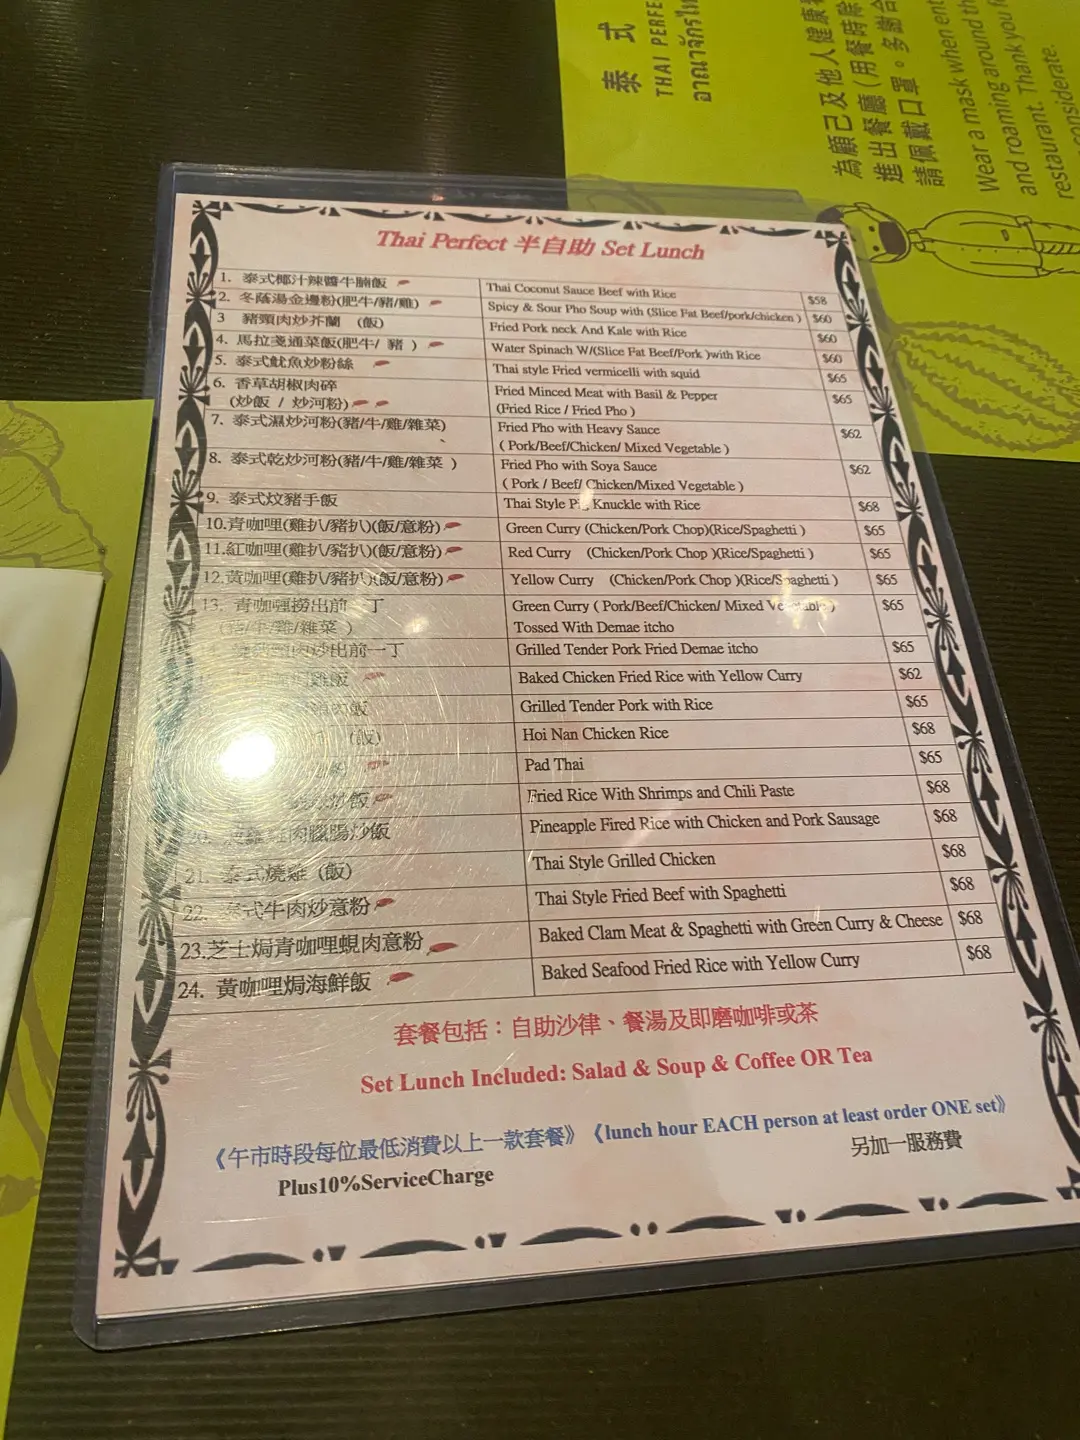 泰式
THAI PERFE
อาณาจักรไท
為顧己及他人健康
進出餐廳(用餐時除
請佩戴口罩。多謝合
Wear a mask when ent
and roaming around th
restaurant. Thank you f
considerate.
Thai Perfect 半自助 Set Lunch
1. 泰式椰汁辣醬牛腩飯 Thai Coconut Sauce Beef with Rice $58
2. 冬蔭湯金邊粉(肥牛/豬/雞) Spicy & Sour Pho Soup with (Slice Fat Beef/pork/chicken ) $60
3 豬頸肉炒芥蘭 (飯) Fried Pork neck And Kale with Rice $60
4. 馬拉戔通菜飯(肥牛/ 豬 ) Water Spinach W/(Slice Fat Beef/Pork )with Rice $60
5. 泰式魷魚炒粉絲 Thai style Fried vermicelli with squid $65
6. 香草胡椒肉碎 Fried Minced Meat with Basil & Pepper $65
(炒飯 / 炒河粉) (Fried Rice / Fried Pho )
7. 泰式濕炒河粉(豬/牛/雞/雜菜) Fried Pho with Heavy Sauce $62
( Pork/Beef/Chicken/ Mixed Vegetable )
8. 泰式乾炒河粉(豬/牛/雞/雜菜 ) Fried Pho with Soya Sauce $62
( Pork / Beef/ Chicken/Mixed Vegetable )
9. 泰式炆豬手飯 Thai Style Pig Knuckle with Rice $68
10.青咖哩(雞扒/豬扒)(飯/意粉) Green Curry (Chicken/Pork Chop)(Rice/Spaghetti ) $65
11.紅咖哩(雞扒/豬扒)(飯/意粉) Red Curry (Chicken/Pork Chop )(Rice/Spaghetti ) $65
12.黃咖哩(雞扒/豬扒)(飯/意粉) Yellow Curry (Chicken/Pork Chop )(Rice/Spaghetti ) $65
13. 青咖喱撈出前一丁 Green Curry ( Pork/Beef/Chicken/ Mixed Vegetable ) $65
(豬/牛/雞/雜菜 ) Tossed With Demae itcho
肉炒出前一丁 Grilled Tender Pork Fried Demae itcho $65
雞飯 Baked Chicken Fried Rice with Yellow Curry $62
肉飯 Grilled Tender Pork with Rice $65
(飯) Hoi Nan Chicken Rice $68
粉 Pad Thai $65
炒飯 Fried Rice With Shrimps and Chili Paste $68
20. 肉臘腸炒飯 Pineapple Fired Rice with Chicken and Pork Sausage $68
21. 泰式燒雞 (飯) Thai Style Grilled Chicken $68
22. 泰式牛肉炒意粉 Thai Style Fried Beef with Spaghetti $68
23.芝士焗青咖哩蜆肉意粉 Baked Clam Meat & Spaghetti with Green Curry & Cheese $68
24. 黃咖哩焗海鮮飯 Baked Seafood Fried Rice with Yellow Curry $68
套餐包括：自助沙律、餐湯及即磨咖啡或茶
Set Lunch Included: Salad & Soup & Coffee OR Tea
《午市時段每位最低消費以上一款套餐》《lunch hour EACH person at least order ONE set》
Plus10%ServiceCharge 另加一服務費